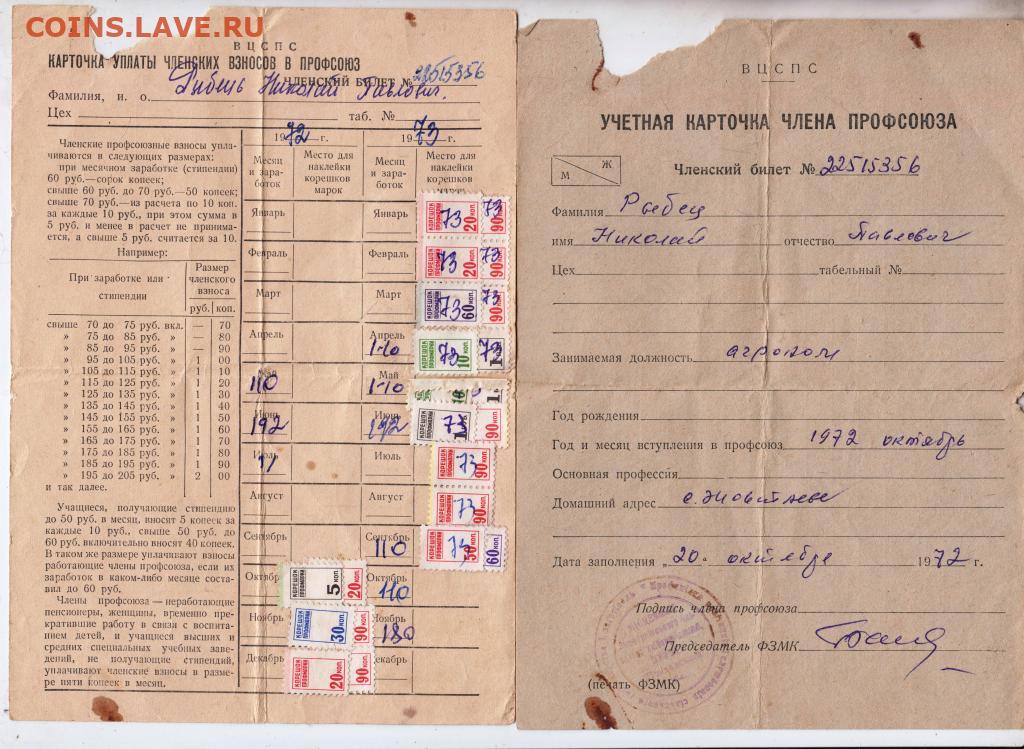 COINS.LAVE.RU
ВЦСПС
КАРТОЧКА УПЛАТЫ ЧЛЕНСКИХ ВЗНОСОВ В ПРОФСОЮЗ
ЧЛЕНСКИЙ БИЛЕТ № 22515356
Фамилия, и. о. Рибець Николай Павлович.
Цех таб. №
Членские профсоюзные взносы упла-
чиваются в следующих размерах:
при месячном заработке (стипендии)
60 руб.—сорок копеек;
свыше 60 руб. до 70 руб.—50 копеек;
свыше 70 руб.—из расчета по 10 коп.
за каждые 10 руб., при этом сумма в
5 руб. и менее в расчет не принима-
ется, а свыше 5 руб. считается за 10.
Например:
При заработке или стипендии
Размер членского взноса
руб. коп.
свыше 70 до 75 руб. вкл. — 70
» 75 до 85 руб. » — 80
» 85 до 95 руб. » — 90
» 95 до 105 руб. » 1 00
» 105 до 115 руб. » 1 10
» 115 до 125 руб. » 1 20
» 125 до 135 руб. » 1 30
» 135 до 145 руб. » 1 40
» 145 до 155 руб. » 1 50
» 155 до 165 руб. » 1 60
» 165 до 175 руб. » 1 70
» 175 до 185 руб. » 1 80
» 185 до 195 руб. » 1 90
» 195 до 205 руб. » 2 00
и так далее.
Учащиеся, получающие стипендию
до 50 руб. в месяц, вносят 5 копеек за
каждые 10 руб., свыше 50 руб. до
60 руб. включительно вносят 40 копеек.
В таком же размере уплачивают взносы
работающие члены профсоюза, если их
заработок в каком-либо месяце соста-
вил до 60 руб.
Члены профсоюза — неработающие
пенсионеры, женщины, временно пре-
кратившие работу в связи с воспита-
нием детей, и учащиеся высших и
средних специальных учебных заве-
дений, не получающие стипендий,
уплачивают членские взносы в разме-
ре пяти копеек в месяц.
1972 г. 1973 г.
Месяц и зара-боток
Место для наклейки корешков марок
Месяц и зара-боток
Место для наклейки корешков
Январь Январь КОРЕШОК ПРОФМАРКИ 20 коп. 73 90 73
Февраль Февраль КОРЕШОК ПРОФМАРКИ 20 коп. 73 90 73
Март Март КОРЕШОК ПРОФМАРКИ 60 коп. 73 90 73
Апрель Апрель 110 КОРЕШОК ПРОФМАРКИ 10 коп. 73 73
Май 110 Май 110
Июнь 192 Июнь 192 КОРЕШОК ПРОФМАРКИ 73 90 коп.
Июль Июль КОРЕШОК ПРОФМАРКИ 73 90
Август Август КОРЕШОК ПРОФМАРКИ 73 90
Сентябрь Сентябрь 110 КОРЕШОК ПРОФМАРКИ 50 60 коп.
Октябрь КОРЕШОК ПРОФМАРКИ 5 коп. 20 коп. Октябрь 110
Ноябрь КОРЕШОК ПРОФМАРКИ 30 коп. 90 коп. Ноябрь 180
Декабрь КОРЕШОК ПРОФМАРКИ 20 коп. 90 коп. Декабрь
ВЦСПС
УЧЕТНАЯ КАРТОЧКА ЧЛЕНА ПРОФСОЮЗА
М Ж
Членский билет № 22515356
Фамилия Рыбец
имя Николай отчество Павлович
Цех табельный №
Занимаемая должность агроном
Год рождения
Год и месяц вступления в профсоюз 1972 октябрь
Основная профессия
Домашний адрес с.
Дата заполнения „20" октября 1972 г.
Подпись члена профсоюза
Председатель ФЗМК
(печать ФЗМК)